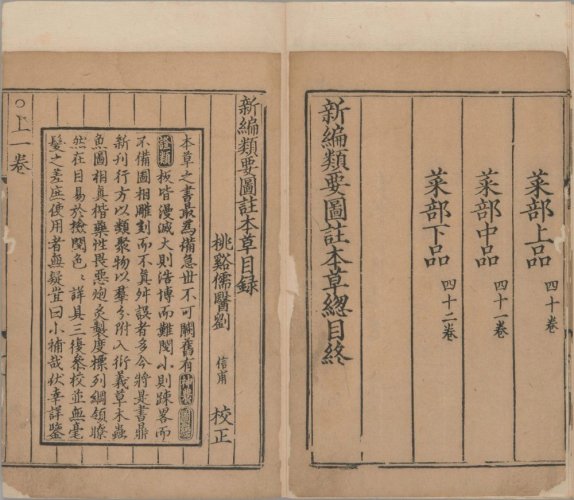 菜部上品 四十卷
菜部中品 四十一卷
菜部下品 四十二卷
新編類要圖註本草總目終
新編類要圖註本草目録
桃谿儒醫劉 信甫 校正
本草之書最爲備急世不可闕舊有
證類板皆漫滅大則浩博而難閱小則踈畧而
不備圖相雕刻而不真舛誤者多今將是書鼎
新刊行方以類聚物以羣分附入衍義草木蟲
魚圖相真楷藥性畏惡炮炙製度標列綱領瞭
然在目易於檢閱色〻詳具三復參校並無毫
髮之差庶使用者無疑豈曰小補哉伏幸詳鑒
○上一卷